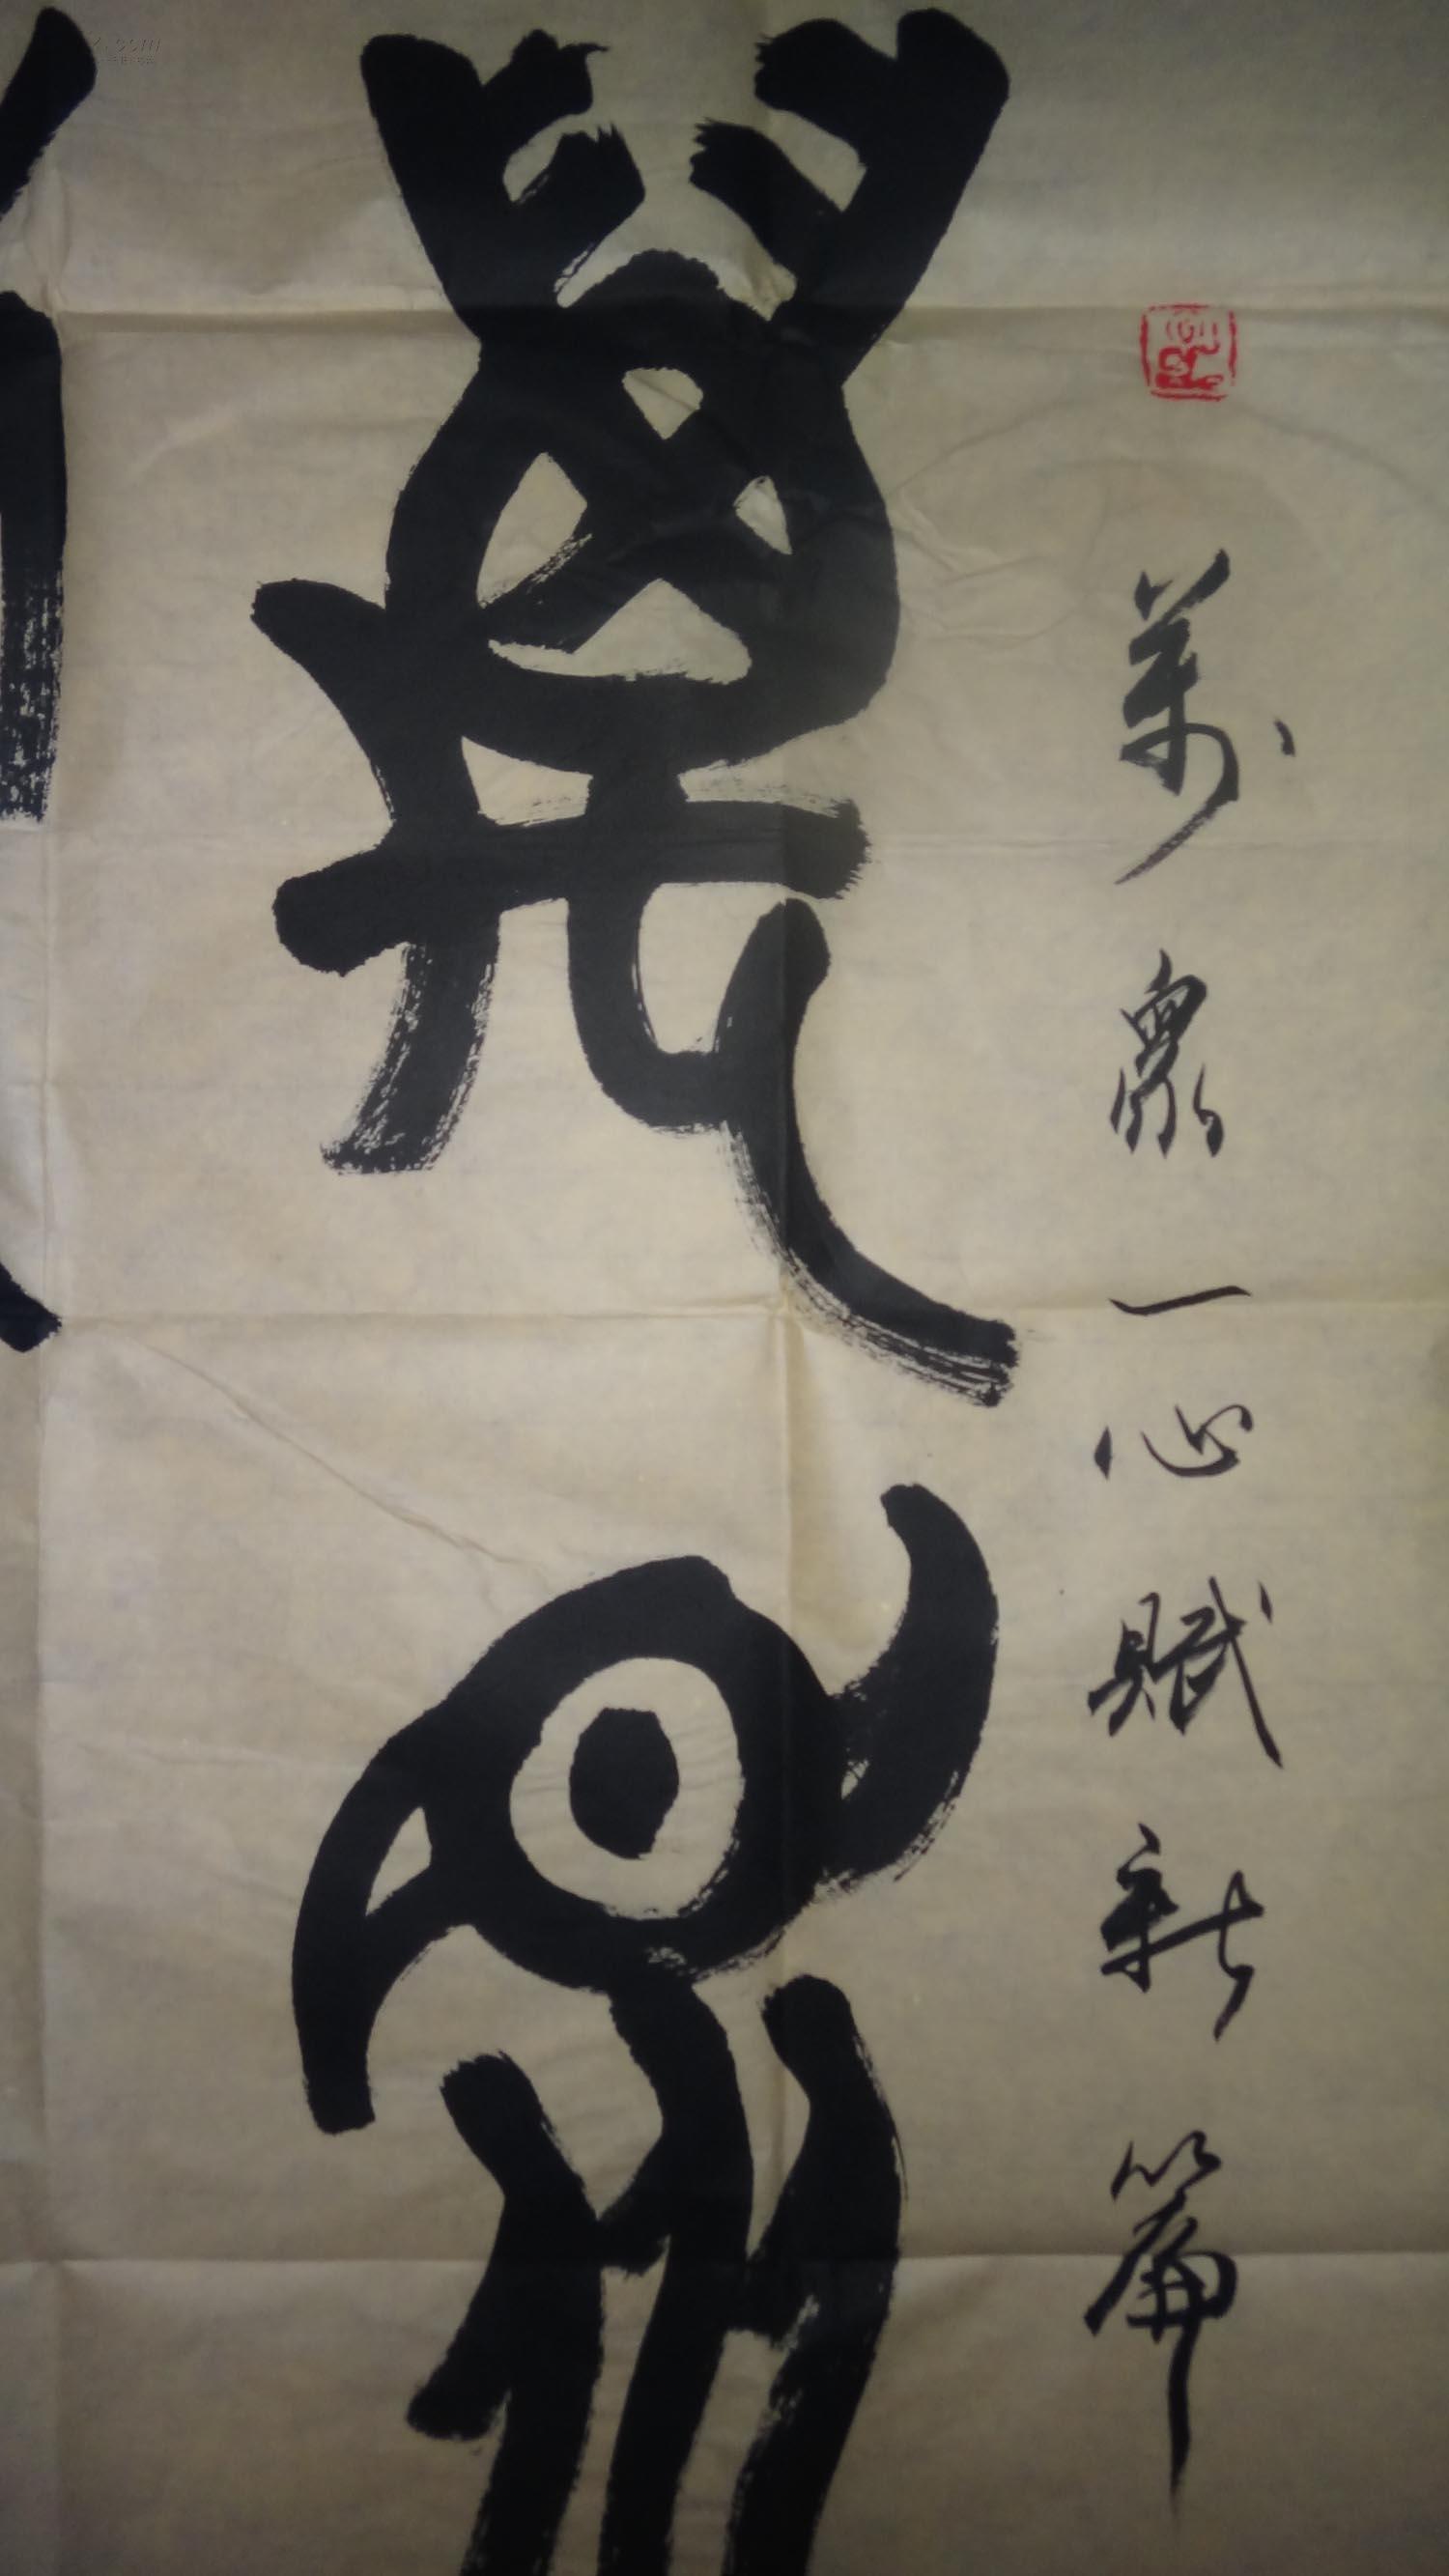 萬眾一心賦新篇
萬眾